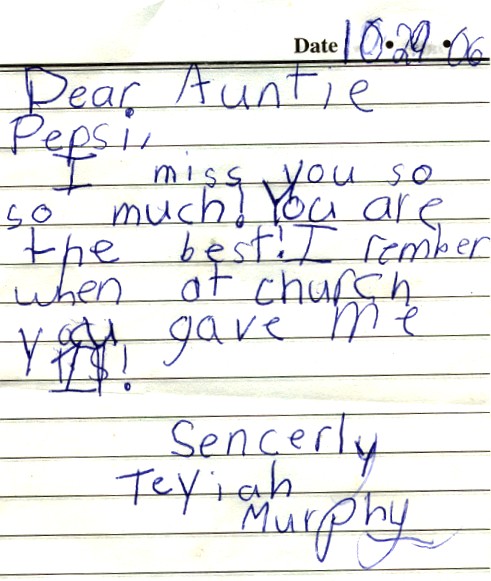 Date 10.29.06
Dear Auntie
Pepsi,
I miss you so
so much! You are
the best! I rember
when at church
you gave me
1$!
Sencerly
Teyiah
Murphy